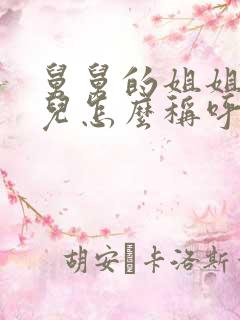 舅舅的姐姐
兒怎麼稱呼
胡安�卡洛斯